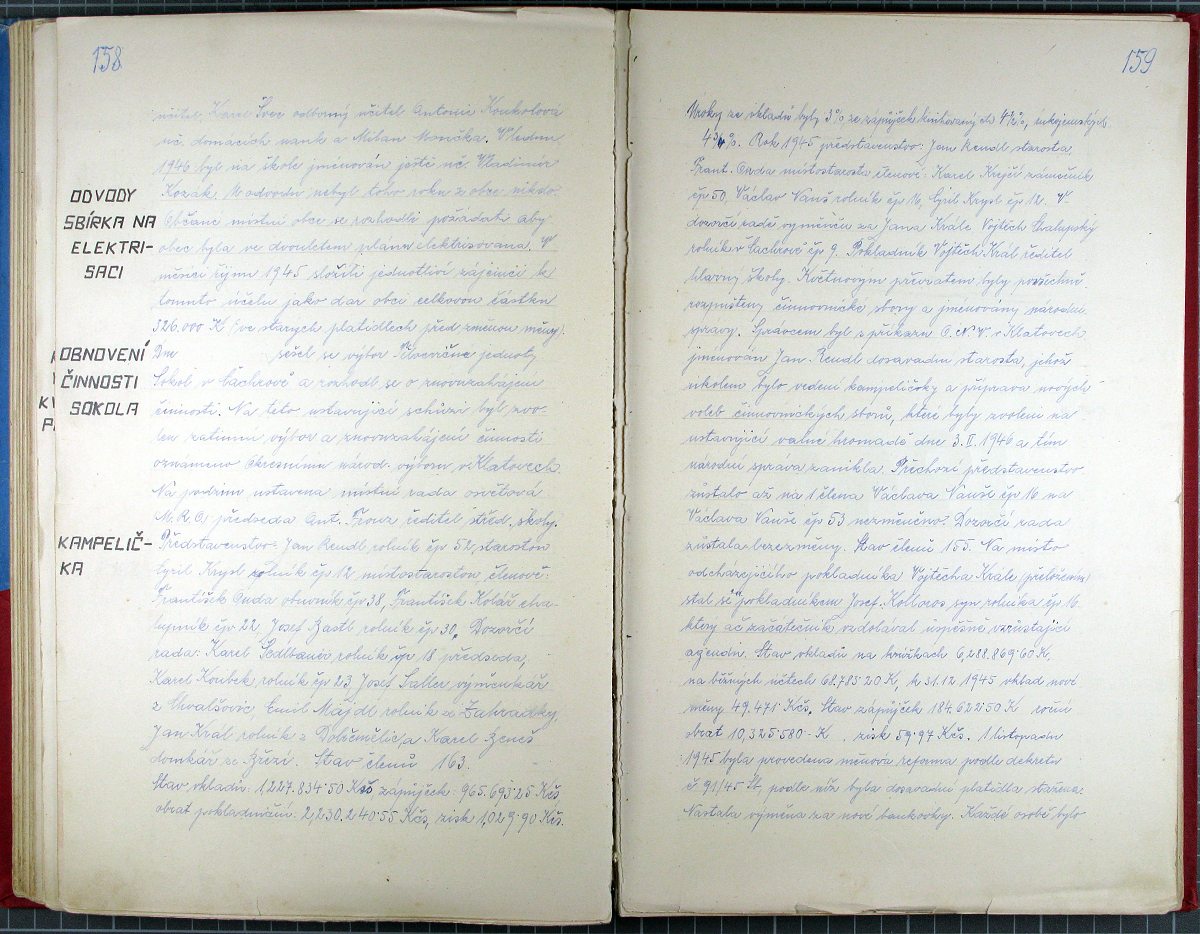 158
učitel, Karel Švec odborný učitel Antonie Koukolová
uč. domácích nauk a Milan Monička. V lednu
1946 byl na škole jmenován ještě uč. Vladimír
Kozák. U odvodu nebyl toho roku z obce nikdo.
ODVODY
SBÍRKA NA
ELEKTRI-
SACI
Občané místní obce se rozhodli požádati aby
obec byla ve dvouletém plánu elektrisována. V
měsíci říjnu 1945 složili jednotliví zájemci k
tomuto účelu jako dar obci celkovou částku
326.000 K (ve starých platidlech před změnou měny).
OBNOVENÍ
ČINNOSTI
SOKOLA
Dne sešel se výbor Tělocvičné jednoty
Sokol v Čachrově a rozhodl se o znovuzahájení
činnosti. Na této ustavující schůzi byl zvo-
len zatímní výbor a znovuzahájení činnosti
oznámeno Okresnímu národ. výboru v Klatovech.
Na podzim ustavena místní rada osvětová
M.R.O. předseda Ant. Franz ředitel střed. školy.
KAMPELIČ-
KA
Představenstvo: Jan Rendl, rolník čp 52, starostou
Cyril Krysl rolník čp 12 místostarostou členové:
František Onda obuvník čp 38, František Kolář cha-
lupník čp 22, Josef Zastl rolník čp 30. Dozorčí
rada: Karel Sedlbauer, rolník čp 18 předseda,
Karel Koubek, rolník čp 23 Josef Saller, výměnkář
z Chvalšovic, Emil Majdl rolník ze Zahrádky,
Jan Král rolník z Dobřemělic, a Karel Beneš
domkář ze Březí. Stav členů 163.
Stav vkladů: 1,227.834·50 Kčs zápůjček: 965.693·25 Kčs
obrat pokladniční: 2,230.240·55 Kčs, zisk 1,029·90 Kčs.
159
Úroky ze vkladů byly 3% ze zápůjček knihovaných 4½%, rukojemských
4¾%. Rok 1945 představenstvo: Jan Rendl starosta,
Frant. Onda místostarosta členové: Karel Krejčí zámečník
čp 50, Václav Vaněš rolník čp 16, Cyril Krysl čp 12. V
dozorčí radě vyměněn za Jana Krále Vojtěch Chalupský
rolník v Čachrově čp 9. Pokladník Vojtěch Král ředitel
hlavní školy. Květnovým převratem byly povšechně
rozpuštěny činovnické sbory a jmenovány národní
správy. Správcem byl z příkazu O.N.V. v Klatovech
jmenován Jan Rendl dosavadní starosta, jehož
úkolem bylo vedení kampeličky a příprava nových
voleb činovnických sborů, které byly zvoleni na
ustavující valné hromadě dne 3.II.1946 a tím
národní správa zanikla. Předchozí představenstvo
zůstalo až na 1 člena Václava Vaněše čp 16 na
Václava Vaněše čp 53 nezměněno. Dozorčí rada
zůstala beze změny. Stav členů 155. Na místo
odcházejícího pokladníka Vojtěcha Krále (přeložením)
stal se pokladníkem Josef Kolboros, syn rolníka čp 16
který ač začátečník vzdoloval úspěšně vzrůstající
agendu. Stav vkladů na knížkách 6,288.869·60 K,
na běžných účtech 68.785·20 K, k 31.12 1945 vklad nové
měny 49.471 Kčs. Stav zápůjček 184.622·50 K roční
obrat 10,325.580·- K , zisk 59·97 Kčs. 1 listopadu
1945 byla provedena měnová reforma podle dekretu
č 91/45 Sb, podle něž byla dosavadní platidla stažena.
Nastala výměna za nové bankovky. Každé osobě bylo